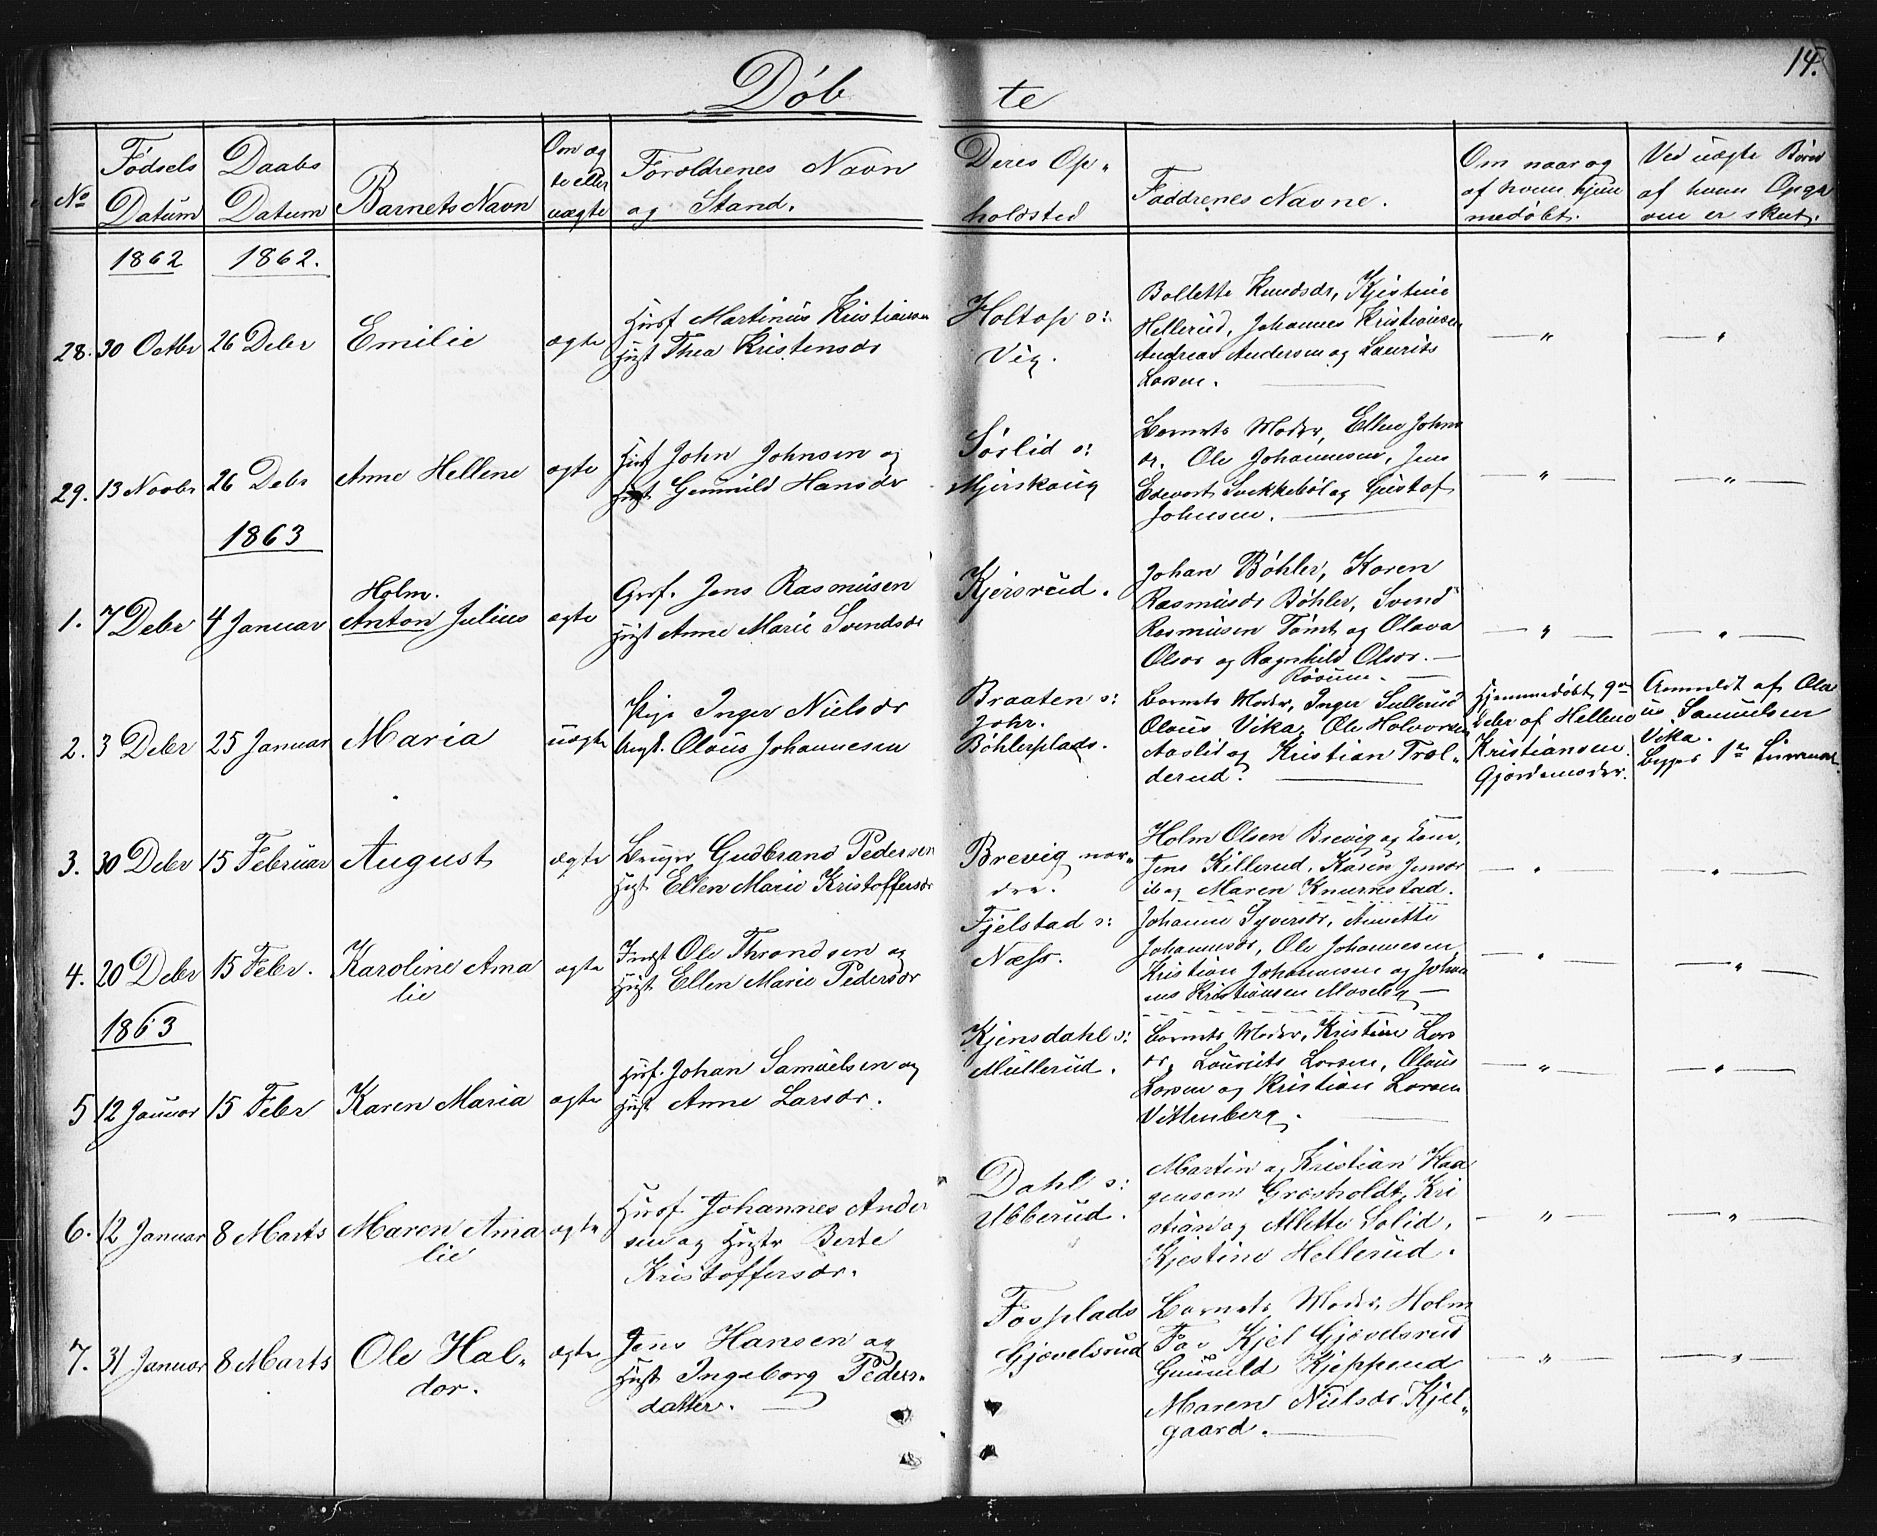 Døb te
14.
No
Fødsels Datum
Daabs Datum
Barnets Navn
Om æg te eller uægte
Forældrenes Navn og Stand.
Deres Op- holdsted
Faddrenes Navne.
Om naar og af hvem hjem medøbt.
Ved uægte Børn af hvem Opga ven er skeet.
1862
1862.
28. 30 Octbr
26 Debr
Emilie
ægte
Husf Martinus Kristiansen
Hust Thea Kristensdr
Holtop o:
Vig.
Bollette Knudsdr, Kjestine
Hellerud, Johannes Kristiansen
Andreas Andersen og Laurits
Larsen.
— " —
— " —
29. 13 Novbr
26 Debr
Anne Hellene
ægte
Husf John Johnsen og
Hust Gunnild Hansdr
Sørlid o:
Mjørskoug
Barnets Moder, Ellen Johns
dr. Ole Johannesen, Jens
Edevart Svekkebøl og Gustaf
Johnsen.
— " —
— " —
1863
1. 7 Debr
4 Januar
Holm.
Anton Julius
ægte
Grf. Jens Rasmusen
Hust Anne Marie Svendsdr
Kjersrud.
Johan Bøhler, Karen
Rasmusdr Bøhler, Svend
Rasmusen Tomt og Olava
Olsdr og Ragnhild Olsdr. —
Røsum. —
— " —
— " —
2. 3 Debr
25 Januar
Maria
uægte
Pige Inger Nielsdr
Ungk. Olaus Johannesen
Braaten o:
Johr.
Bøhlerplads.
Barnets Moder, Inger Sullerud
Olaus Vika, Ole Halvorsen
Aaslid og Kristian Trol-
derud.
Hjemmedøbt 9de
Debr af Hellene
Kristiansen
Gjordemoder.
Anmeldt af Ola
us Samuelsen
Vika.
Begges 1ste
3. 30 Debr
15 Februar
August
ægte
Bruger Gudbrand Pedersen
Hust Ellen Marie Kristoffersdr
Brevig nor-
dre.
Holm Olsen Brevig og
Jens Killerud, Karen Jensdr
ib og Maren Knurrestad.
— " —
— " —
4. 20 Debr
15 Febr.
Karoline Ama
lie
ægte
Ole Throndsen og
Hust Ellen Marie Pedersdr
Fjelstad o:
Næss.
Johanne Syversdr, Anette
Johannesdr, Ole Johannesen
Kristian Johannesen og Johan
nes Kristiansen Moseby —
— " —
— " —
1863
5 12 Januar
15 Febr
Karen Maria
ægte
Husf. Johan Samuelsen og
Hust Anne Larsdr.
Kjensdahl o:
Mullerud.
Barnets Moder, Kristine Lars
dr, Laurits Larsen, Olaus
Larsen og Kristian Larsen
Vittenberg.
— " —
— " —
6. 12 Januar
8 Marts
Maren Ama
lie
ægte
Husf Johannes Ander
sen og Hustr Berte
Kristoffersdr.
Dahl o:
Ubberud.
Martin og Kristian Haa
gensen Græsholdt, Kri
stian og Mette Solid,
Kjestine Hellerud.
— " —
— " —
7. 31 Januar
8 Marts
Ole Hal-
dor.
ægte
Jens Hansen og
Hust Ingeborg Peders-
datter. —
Fosplads
Gjævelsrud
Barnets Moder, Holm
Fos Kjel Gjævelsrud
Gunnild Kjepperud
Maren Nielsdr Kjel-
gaard.
— " —
— " —